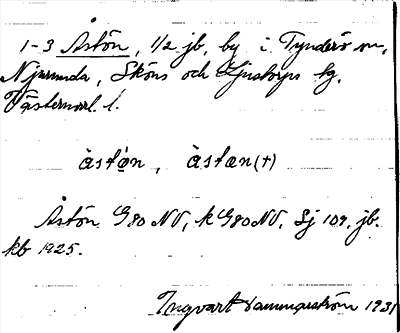 1-3 Åstön, 1/2 jb, by i Tynderö sn,
Njurunda, Sköns och Ljustorps tg,
Västernorrl. l.
àstø̀n, àstæn(+)
Åstön G80 NV, k G80 NV, Sj 109. jb.
kb 1925.
Ingvart Hammarström 1931